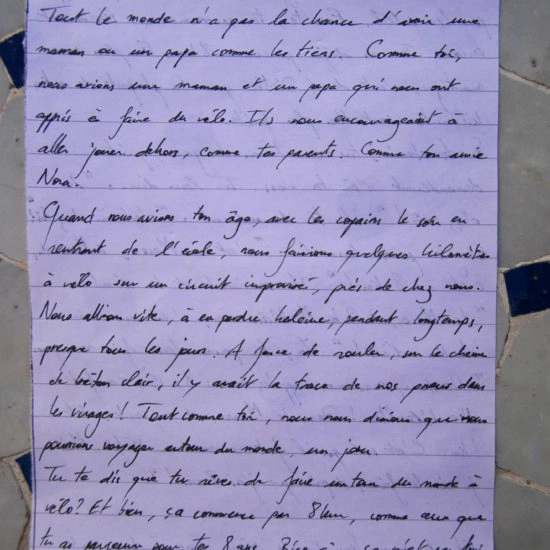 Tout le monde n'a pas la chance d'avoir une
maman ou un papa comme les tiens. Comme toi,
nous avions une maman et un papa qui nous ont
appris à faire du vélo. Ils nous encourageaient à
aller jouer dehors, comme tes parents. Comme ton amie
Nora.
Quand nous avions ton âge, avec les copains le soir en
rentrant de l'école, nous faisions quelques kilomètres
à vélo sur un circuit improvisé, près de chez nous.
Nous allions vite, à en perdre haleine, pendant longtemps,
presque tous les jours. A force de rouler, sur le chemin
de béton clair, il y avait la trace de nos pneus dans
les virages! Tout comme toi, nous nous disions que nous
pourrions voyager autour du monde, un jour.
Tu te dis que tu rêves de faire un tour du monde à
vélo? Et bien, ça commence par 8km, comme ceux que
tu as parcouru pour tes 8 ans.